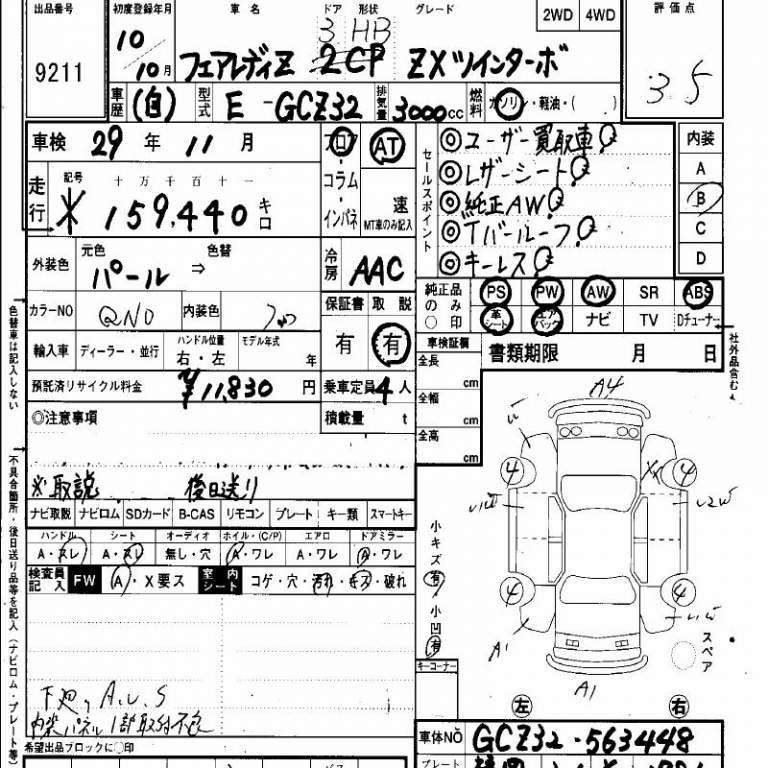 出品番号 初度登録年月 車名 ドア 形状 グレード 2WD 4WD 評価点
3 HB
9211 10年10月 フェアレディZ 2CP ZXツインターボ 3.5
車歴 (自) 型式 E-GCZ32 排気量 3000cc 燃料 ガソリン・軽油・( )
車検 29年 11月 フロア AT ◎ユーザー買取車 内装
走行 記号 十万千百十一 コラム ◎レザーシート A
* 159,440 キロ インパネ 速 ◎純正AW B
MT車のみ記入 セールスポイント ◎Tバールーフ C
外装色 元色 パール ⇒ 色替 冷房 AAC ◎キーレス D
純正品のみ○印 PS PW AW SR ABS
カラーNO QN0 内装色 保証書 取説 革シート エアバッグ ナビ TV Dチューナー
有 有
輸入車 ディーラー・並行 ハンドル位置 右・左 モデル年式 年 車検証欄 書類期限 月 日
預託済リサイクル料金 ¥11,830円 乗車定員 4人 全長 cm
◎注意事項 積載量 t 全幅 cm
全高 cm
※取説 後日送り
ナビ取説 ナビロム SDカード B-CAS リモコン プレート キー類 スマートキー
ハンドル シート オーディオ ホイル・(C/P) エアロ ドアミラー
A・スレ A・スレ 無し・穴 A・ワレ A・ワレ A・ワレ
検査員記入 FW A・X要ス 室内シート コゲ・穴・汚れ・キズ・破れ
小キズ 有 小凹 有
キーコーナー
A4
4 4
XX
4 4
A1
A1
スペア
左 右
下廻り A.U.S
内装パネル1部取付不良
希望出品ブロックに○印
車体NO GCZ32-563448
プレート
色替車は記入しない
不具合箇所・後日送り品等を記入(ナビロム・プレート等)
社外品含む